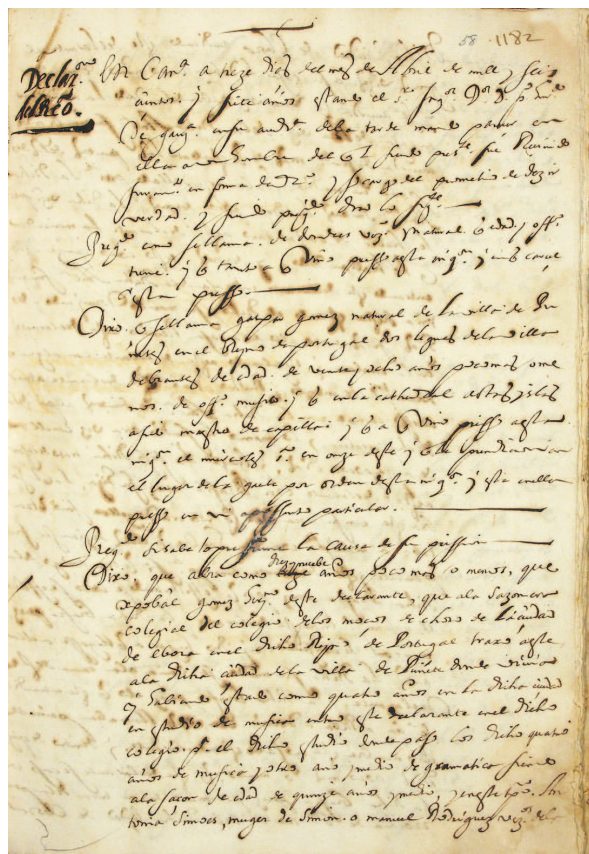 58 1182
Declaraon
del Reo.
En Cana a treze dias del mes de Abril de mill y seis
cientos y siete años estando el Sr
en su auda de la tarde mando parar
un hombre del ql siendo preste fue Reciuido
juramto en forma de dro y so cargo del prometio de dezir
verdad y siendo pregdo dixo lo sigte
Pregdo como se llama de donde es vezo y natural q edad y offo
tiene y q tanto a q vino presso a esta inqon y en q carcel
esta presso
Dixo q se llama gaspar gomez natural de la villa de
en el Reyno de portugal dos leguas de la villa
de brantes de edad de veinte y ocho años poco mas o me
nos de offo musico y q en la cathedral destas yslas
a sido maestro de capilla y q a q vino presso a esta
inqon el miercoles en onze deste y q le prendio
el lugar de la por orden desta inqon y esta en ella
presso en un apossento particular
Pregdo si sabe o presume la causa de su prission
Dixo que abra como diez y nuebe años poco mas o menos, que
xpobal gomez deste declarante, que a la sazon era
colegial del colegio de los moços de choro de la ciudad
de ebora en el dicho Rno de Portugal traxo a este
a la dicha ciudad de la villa de Puñete donde viuia
y habiendo estado como quatro años en la dicha ciudad
en estudio de musica entro este declarante en el dicho
colegio el dicho estudio donde passo los dichos quatro
años de musica y otro año y medio de gramatica siendo
a la sazon de edad de quinze años y medio, y en este tpo
Simoes, muger de Simon o manuel Rodriguez vezo de la